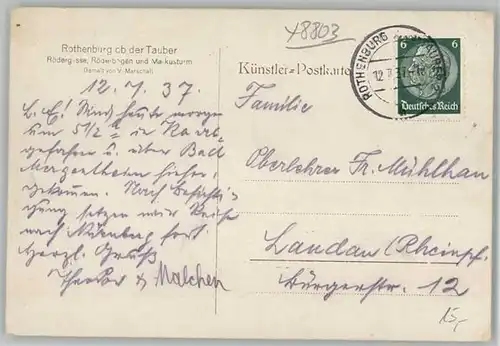 x8803
Rothenburg ob der Tauber
Rödergasse, Röderbogen und Markusturm
Gemalt von V. Marschall
Künstler-Postkarte
ROTHENBURG
6 6
Deutsches Reich
12.7.37.
L. E.! Sind heute morgen
um 5 1/2 in Karls
gefahren u. über Bad
Mergentheim hieher
gekommen. Nach Besichti-
gung setzen wir Reise
nach Nürnberg fort.
Herzl. Gruß
Theodor & Malchen
Familie
Oberlehrer Fr. Mühlhan
Landau (Rheinpf.
Bürgerstr. 12
15,-